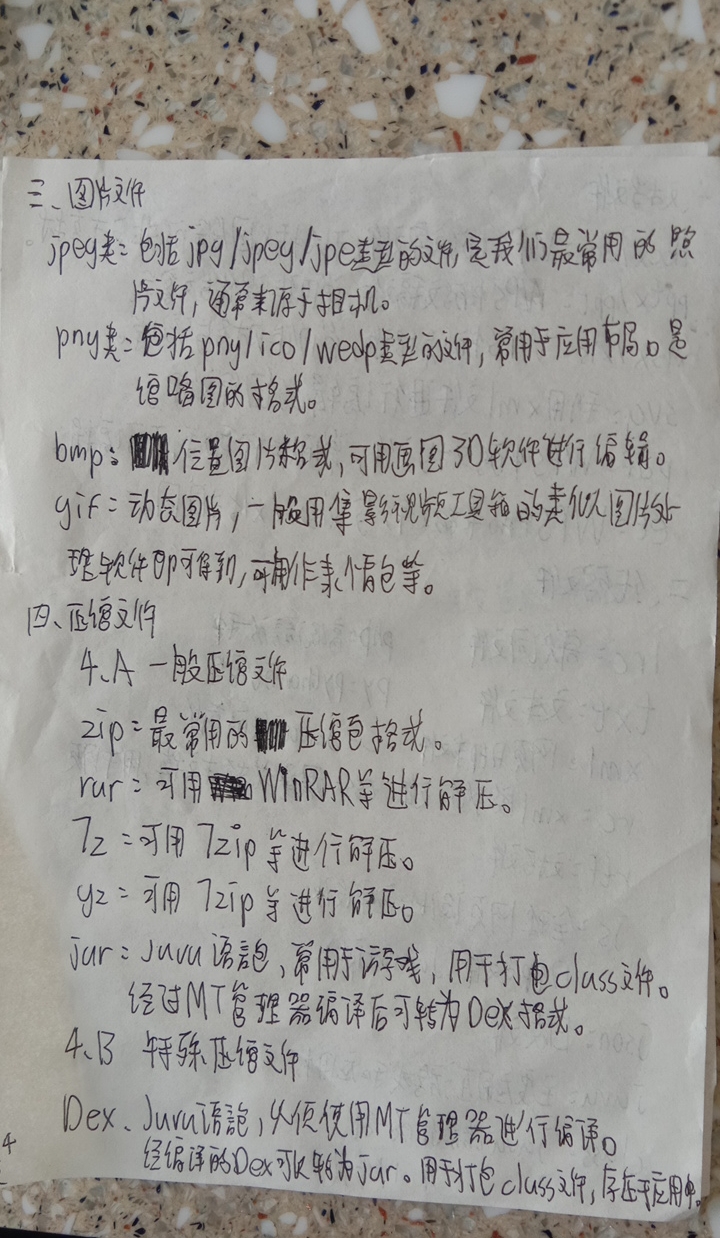 三、图片文件
jpeg类：包括jpg/jpeg/jpe类型的文件，是我们最常用的照
片文件，通常来源于相机。
png类：包括png/ico/wedp类型的文件，常用于应用布局。是
缩略图的格式。
bmp：位置图片格式，可用画图3D软件进行编辑。
gif：动态图片，一般用 影视频工具箱的类似图片处
理软件即可得到，可用作表情包等。
四、压缩文件
4.A 一般压缩文件
zip：最常用的压缩包格式。
rar：可用WinRAR等进行解压。
7z：可用7zip等进行解压。
gz：可用7zip等进行解压。
jar：Java语言包，常用于游戏，用于打包class文件。
经过MT管理器编译后可转为Dex格式。
4.B 特殊压缩文件
Dex、Java语言包，必须使用MT管理器进行编译。
经编译的Dex可以转为jar。用于打包class文件，存在于应用中。
4